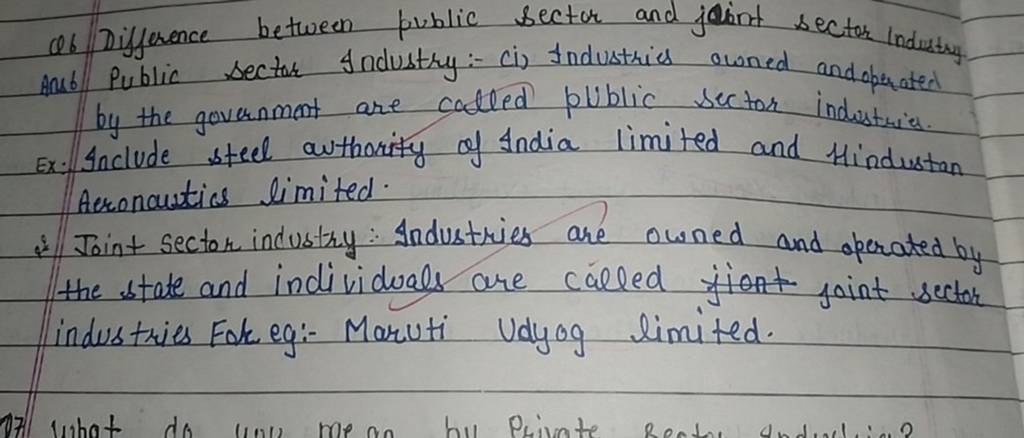 Q6 Difference between public sector and joint sector Industry
Ans6 Public sector Industry :- (i) Industries owned and operated
by the government are called public sector industries.
Ex:- Include steel authority of India limited and Hindustan
Aeronautics limited.
Joint sector industry : Industries are owned and operated by
the state and individuals are called jiont joint sector
industries For eg:- Maruti Udyog limited.
Q7 What do you mean by Private Sector Industries?